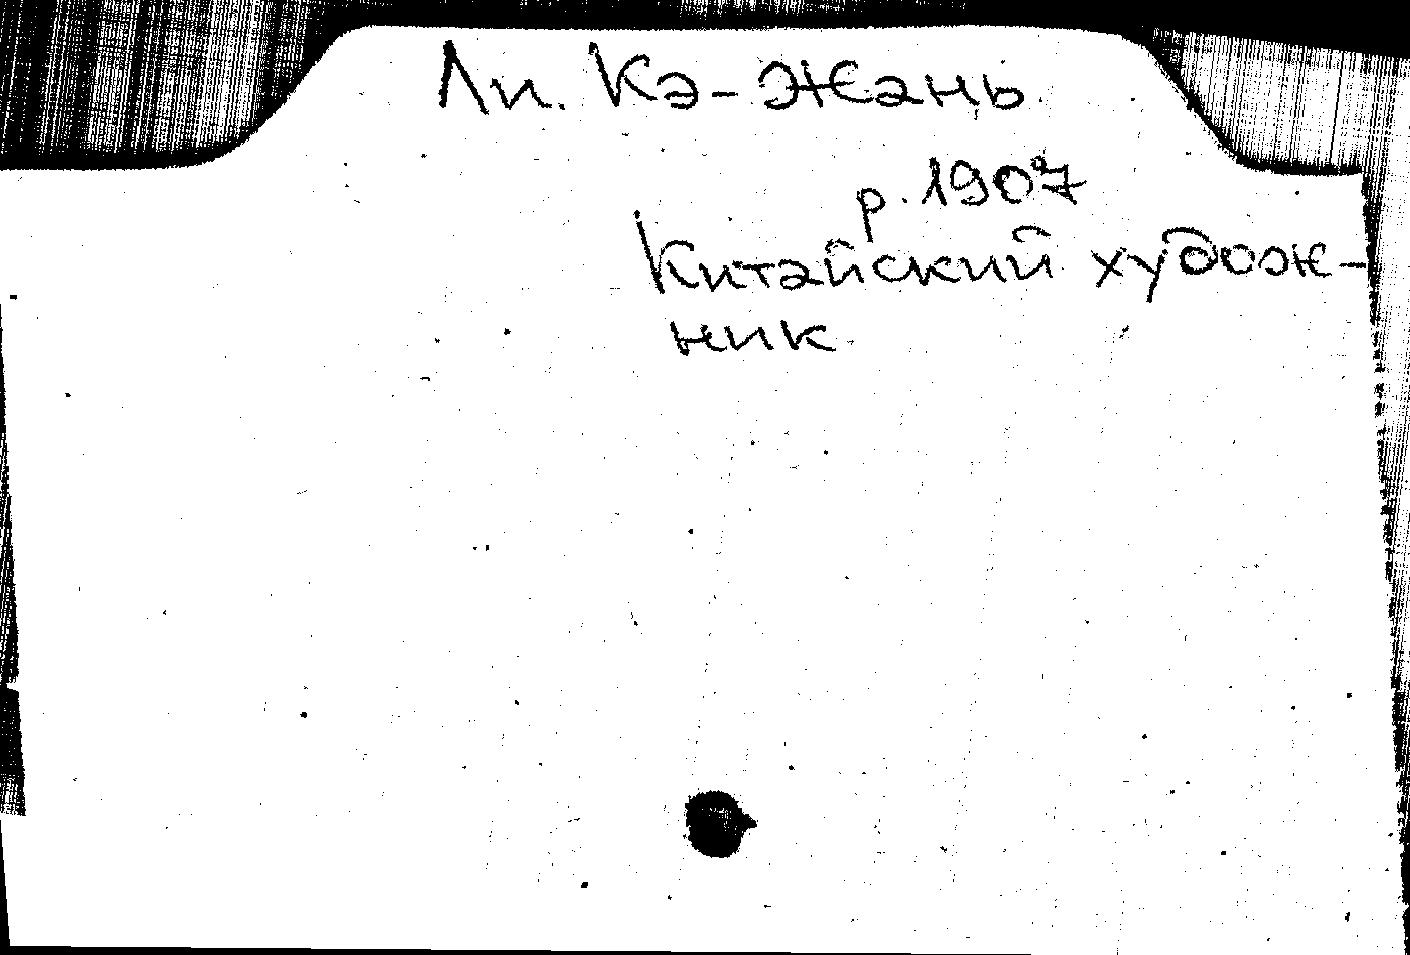 Ли. Кэ-Жань
р. 1907
Китайский худож-
ник